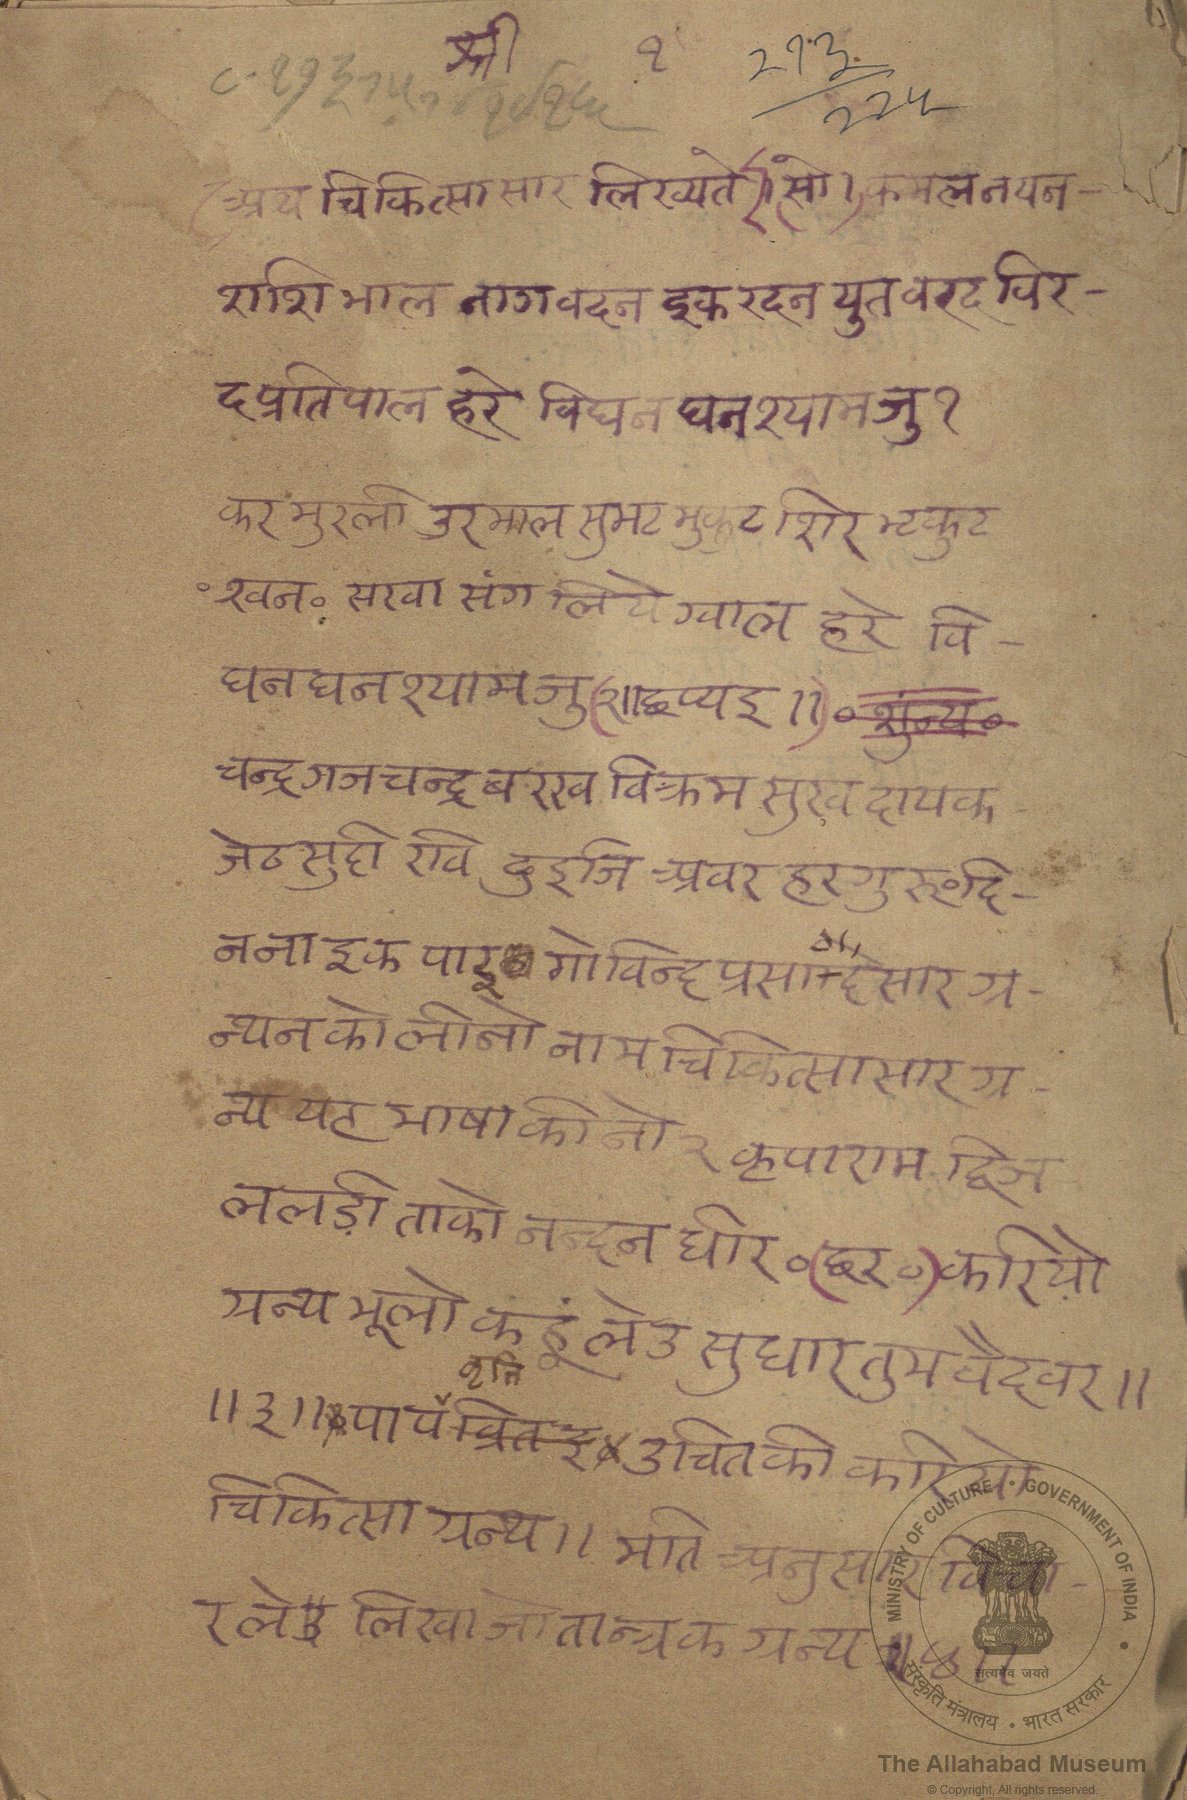 श्री १ २१३/२२५
(अथ चिकित्सासार लिख्यते)(।सो।)कमलनयन-
शशिभाल नागवदन इकरदन युत वरद विर-
द प्रतिपाल हरे विघन घनश्यामजु १
कर मुरली उरमाल सुभट मुकुट शिर मटकुट
श्वन॰ सखा संग लिये ग्वाल हरे वि-
घनघनश्यामजु(२॥छप्पइ॥)॰शुन्य॰
चन्द्रगजचन्द्रबरख विक्रम सुखदायक-
जेठ सुदी रवि दुइजि अवर हरगुरु॰दि-
ननाइक पाइ गोविन्दप्रसाद सार ग्र-
न्थनको लीनो नाम चिकित्सासार ग्र-
न्थ यह भाषा कीनो २ कृपाराम द्विज
ललड़ी ताको नन्दन धीर॰(छर॰)करियो
ग्रन्थ भूलो कहूं लेउ सुधार तुम वैदवर॥
॥३॥ उचित की करियो
चिकित्सा ग्रन्थ॥ मति अनुसार विचा-
र ले लिखा जो तान्त्रक ग्रन्थ ॥४॥
MINISTRY OF CULTURE • GOVERNMENT OF INDIA
सत्यमेव जयते
संस्कृति मंत्रालय • भारत सरकार
The Allahabad Museum
© Copyright, All rights reserved.